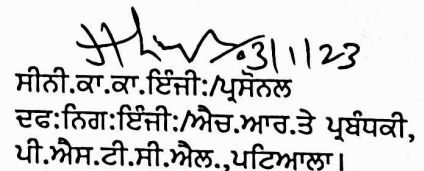 03/1/23
ਸੀਨੀ.ਕਾ.ਕਾ.ਇੰਜੀ:/ਪ੍ਰਸੋਨਲ
ਦਫ:ਨਿਗ:ਇੰਜੀ:/ਐਚ.ਆਰ.ਤੇ ਪ੍ਰਬੰਧਕੀ,
ਪੀ.ਐਸ.ਟੀ.ਸੀ.ਐਲ.,ਪਟਿਆਲਾ।